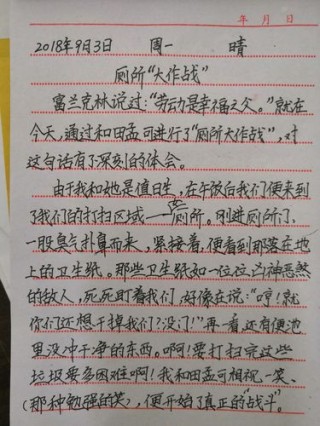 年 月 日
2018年9月3日 周一 晴
厕所“大作战”
富兰克林说过：“劳动是幸福之父。”就在
今天，通过和田孟可进行了“厕所大作战”，对
这句话有了深刻的体会。
由于我和她是值日生，在午饭后我们便来到
了我们的打扫区域——厕所。刚进厕所门，
一股臭气扑鼻而来，紧接着，便看到那落在地
上的卫生纸。那些卫生纸如一位位凶神恶煞
的敌人，死死盯着我们，好像在说：“哼！就
你们还想干掉我们？没门！”再一看，还有便池
里没冲干净的东西。啊！要打扫完这些
垃圾要多困难啊！我和田孟可相视一笑、
（那种勉强的笑），便开始了真正的“战斗”。